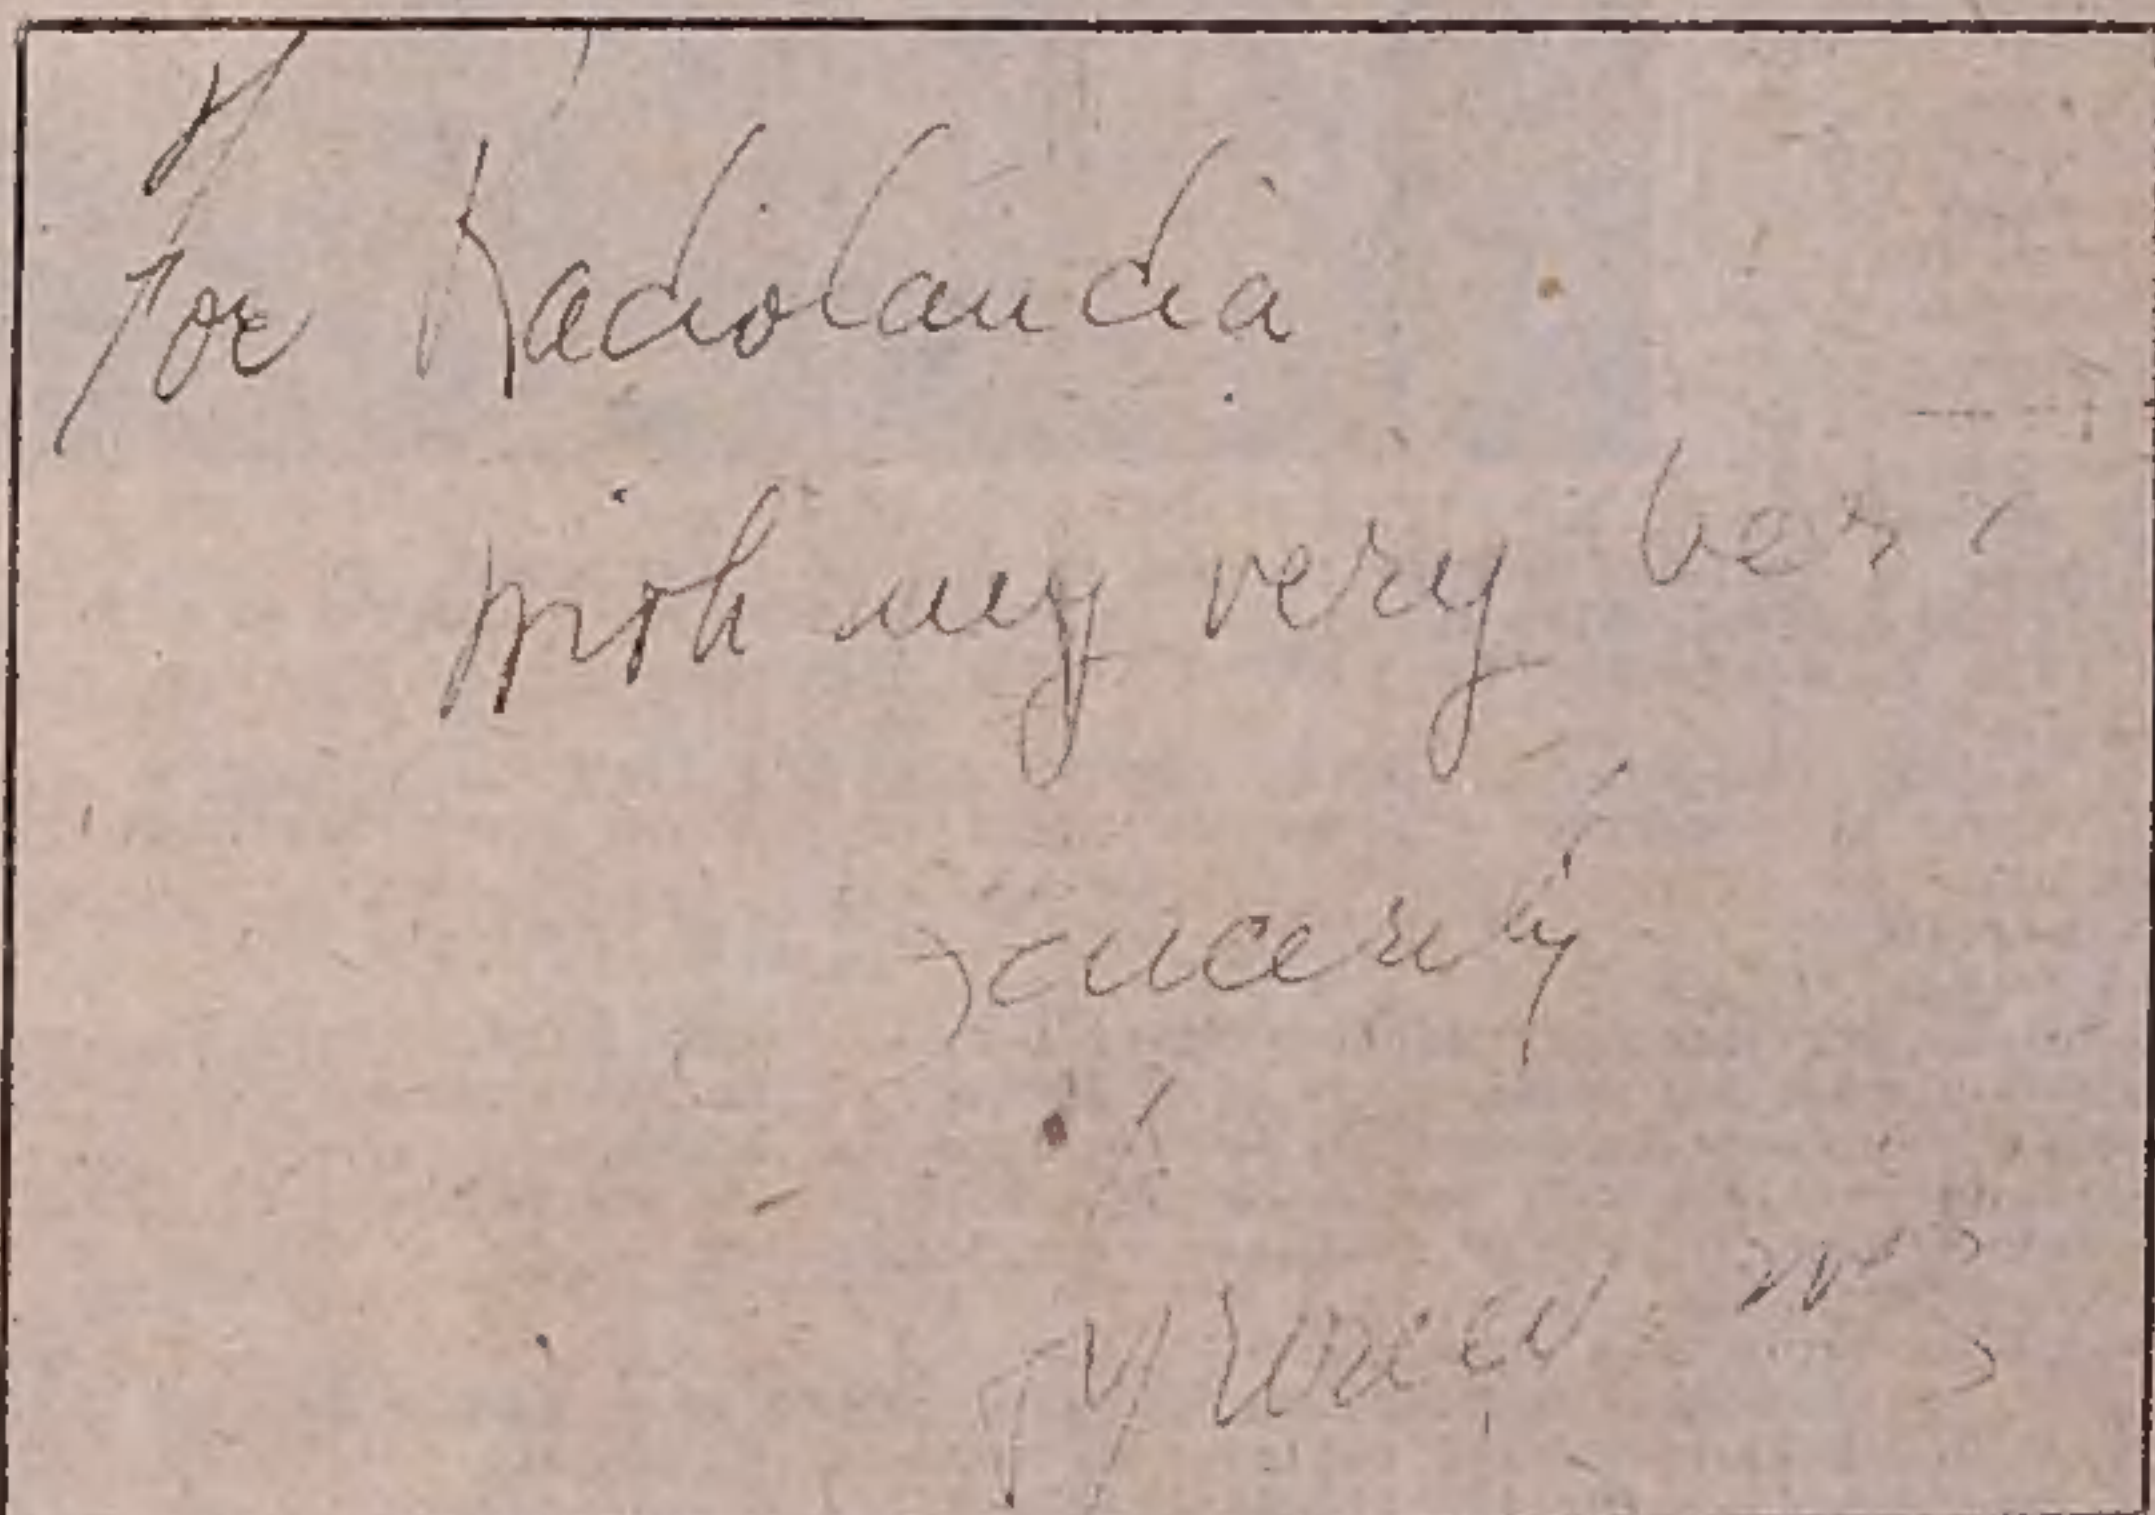 For Radiolandia
with my very best
Sincerely